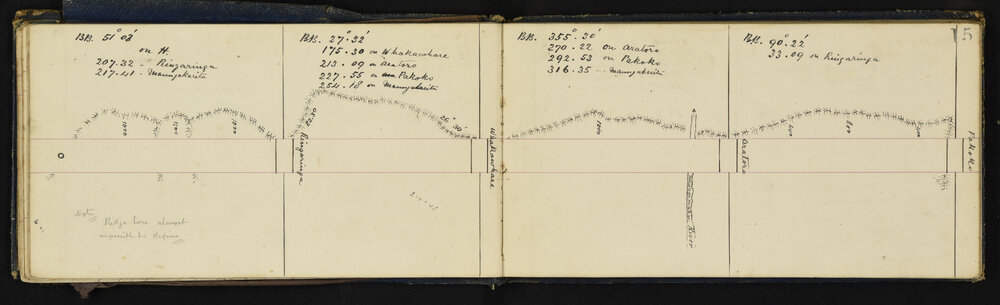 B.B. 51° 03'
on H.
207.32 " Ringaringa
217.41 - Maungakarita
1000
1000
O
Note
Ridge here almost
impossible to define
B.B. 27° 32'
175.30 on Whakawhare
213.09 on Aratoro
227.55 on Pakoko
254.18 on Maungakarita
26° 30'
Ringaringa
Whakawhare
B.B. 355° 20'
270.22 on Aratoro
292.53 on Pakoko
316.35 -- Maungakarita
1000
River
Aratoro
B.B. 90° 22'
33.09 on Ringaringa
800
Pakoko
5